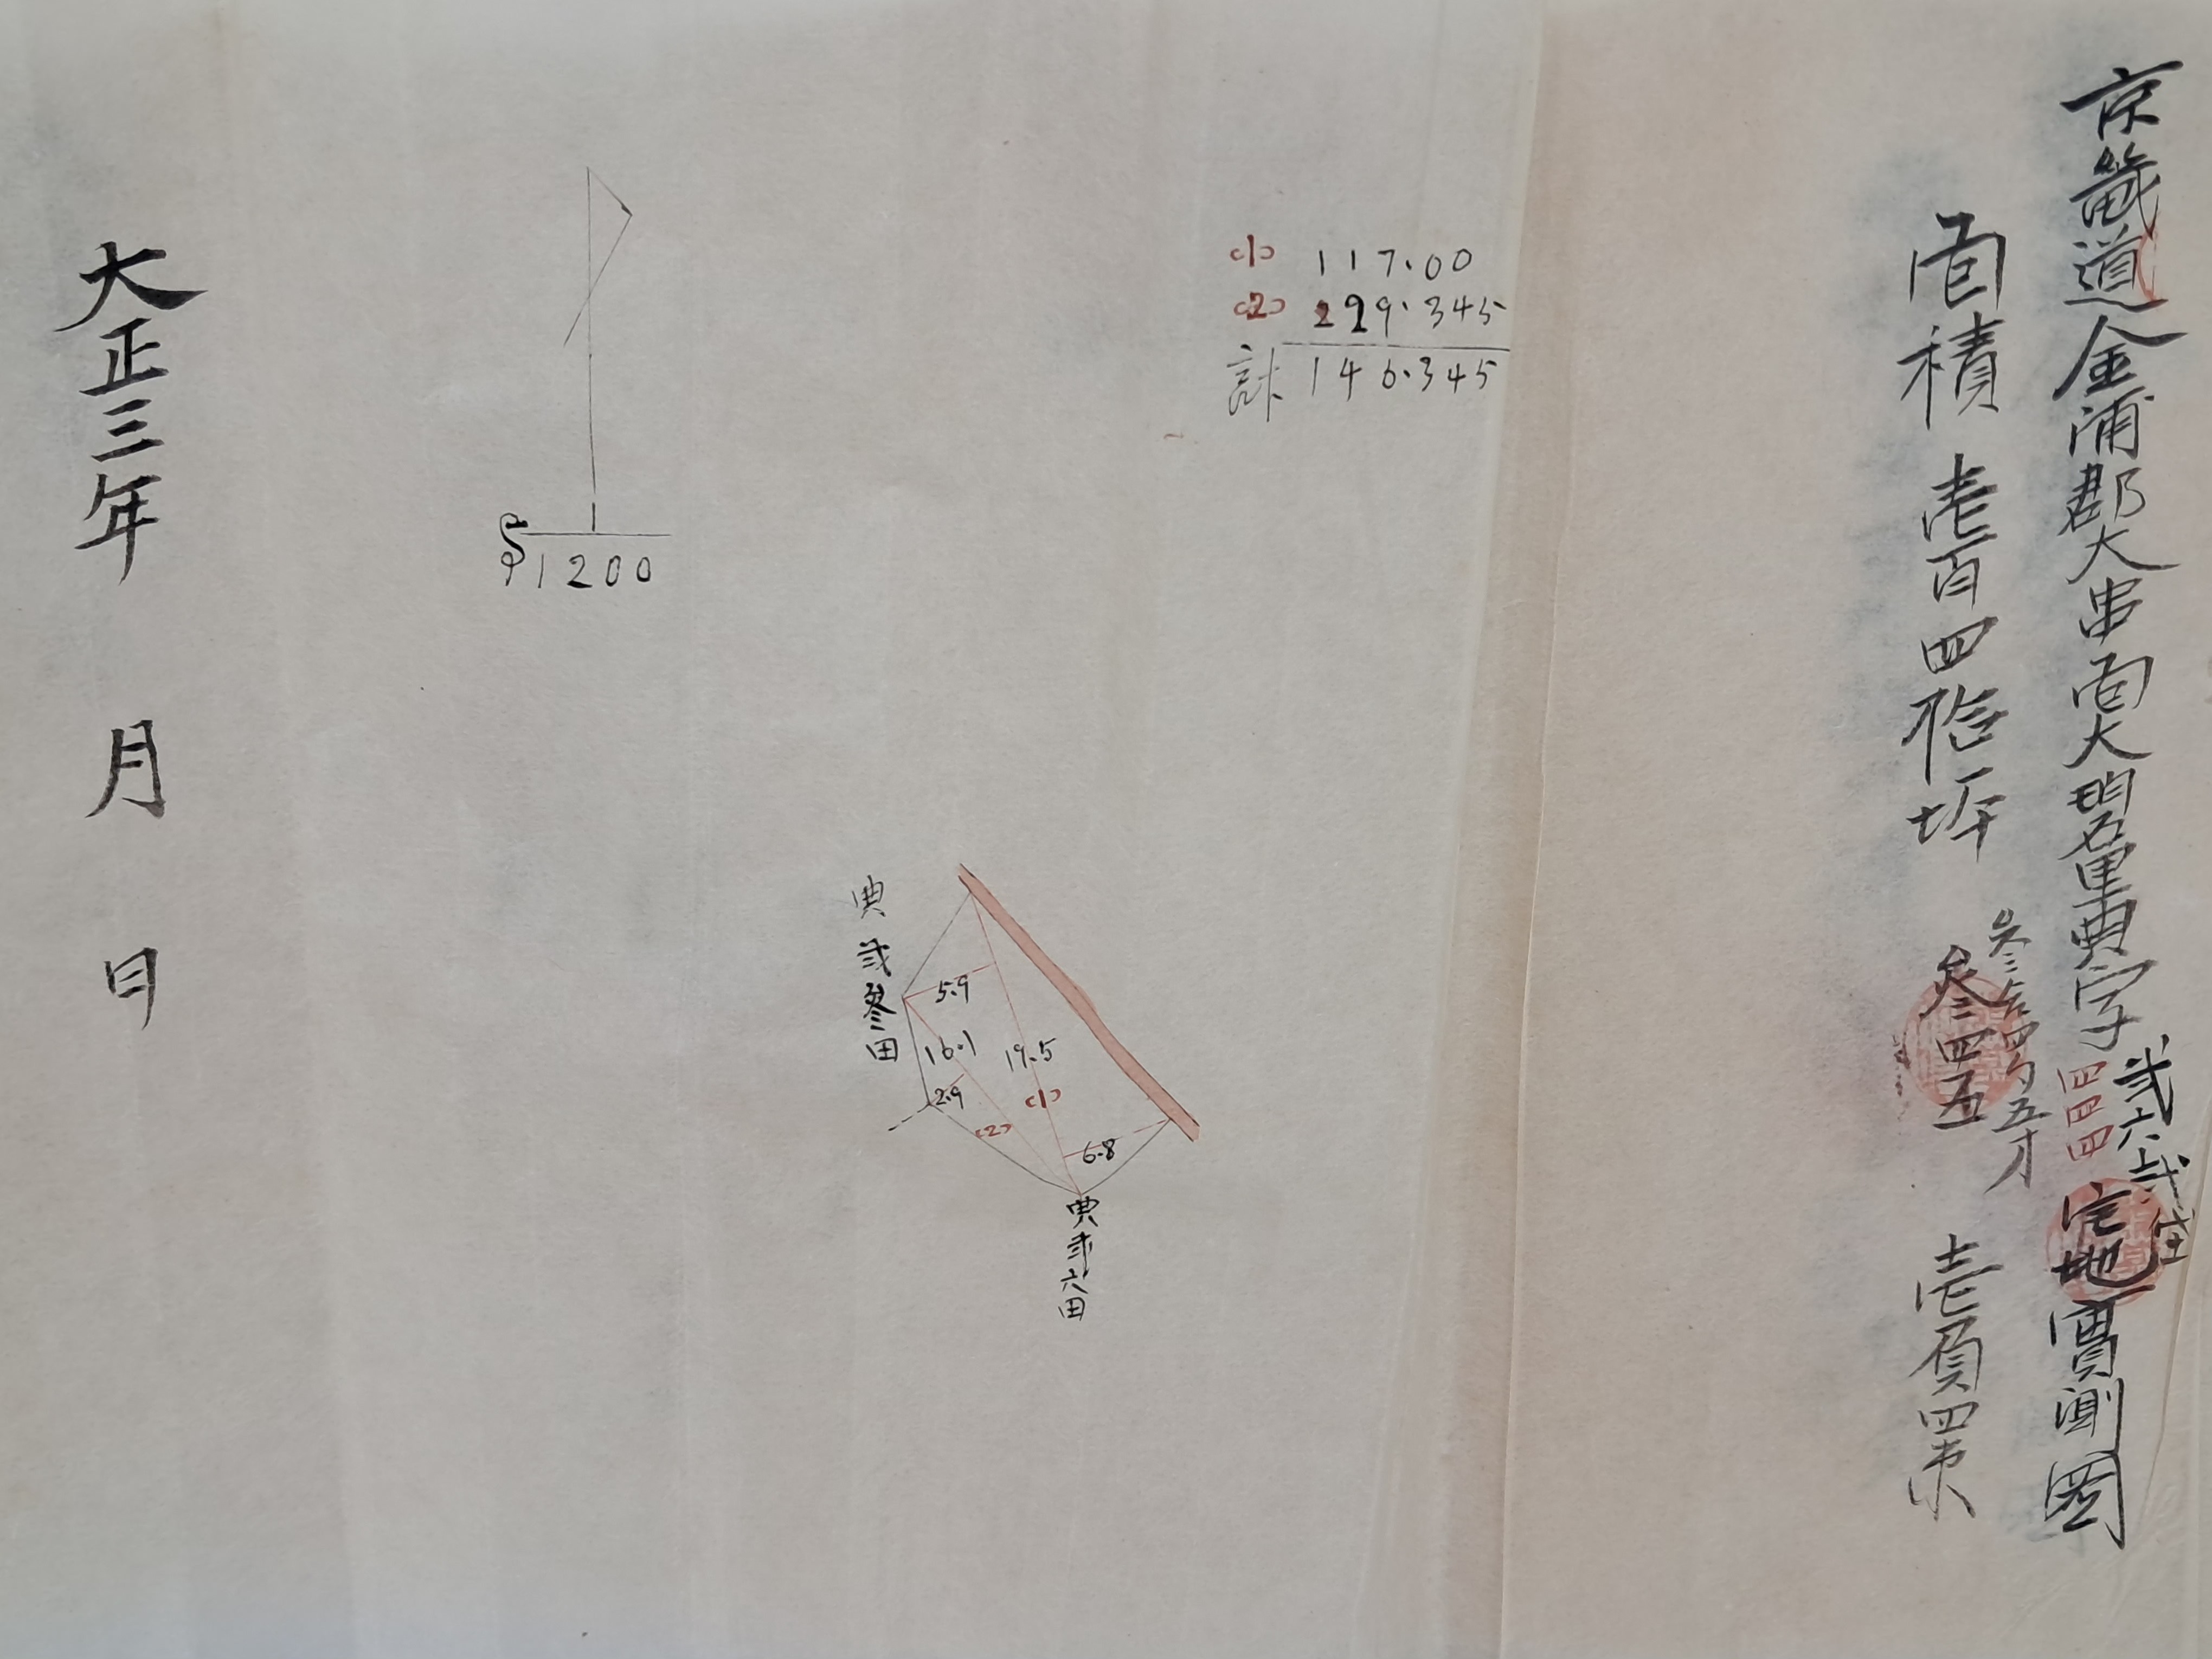 京畿道金浦郡大串面大明里典字四四四垈地實測圖
弐六弐垈
面積 壱百四拾坪 叄四五 壱負四束
叄合四勺五才
(1) 117.00
(2) 229.345
計 146.345
1200
典弐參田
5.9
16.1
19.5
2.9
(1)
(2)
6.8
典弐六田
大正三年 月 日